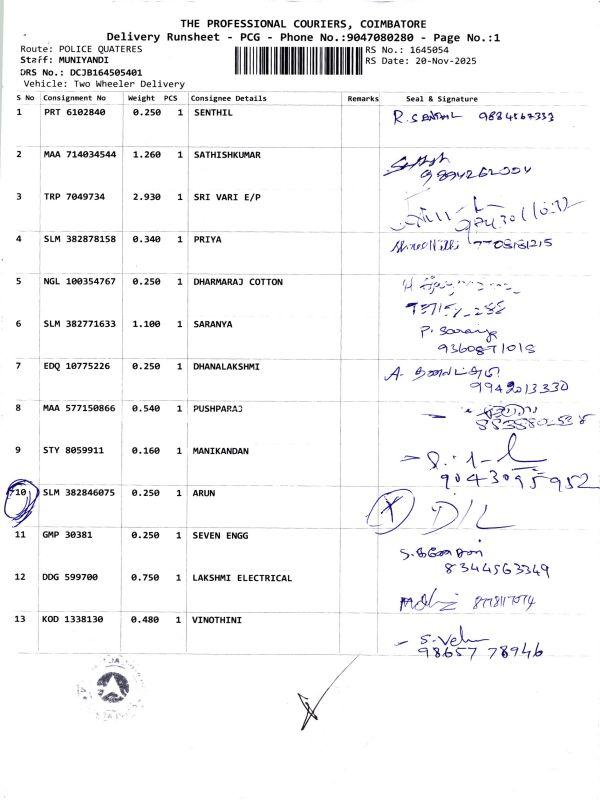 THE PROFESSIONAL COURIERS, COIMBATORE
Delivery Runsheet - PCG - Phone No.:9047080280 - Page No.:1
Route: POLICE QUATERES
RS No.: 1645054
Staff: MUNIYANDI
RS Date: 20-Nov-2025
DRS No.: DCJB164505401
Vehicle: Two Wheeler Delivery
S No Consignment No Weight PCS Consignee Details Remarks Seal & Signature
1 PRT 6102840 0.250 1 SENTHIL R. SENTHIL 9884567333
2 MAA 714034544 1.260 1 SATHISHKUMAR
3 TRP 7049734 2.930 1 SRI VARI E/P
4 SLM 382878158 0.340 1 PRIYA
5 NGL 100354767 0.250 1 DHARMARAJ COTTON
6 SLM 382771633 1.100 1 SARANYA P. Saranya
9360871018
7 EDQ 10775226 0.250 1 DHANALAKSHMI A. தனலட்சுமி
9942013330
8 MAA 577150866 0.540 1 PUSHPARAJ
9 STY 8059911 0.160 1 MANIKANDAN
9043095952
10 SLM 382846075 0.250 1 ARUN X D/L
11 GMP 30381 0.250 1 SEVEN ENGG
8344563349
12 DDG 599700 0.750 1 LAKSHMI ELECTRICAL
13 KOD 1338130 0.480 1 VINOTHINI S. Velu
98657 78946